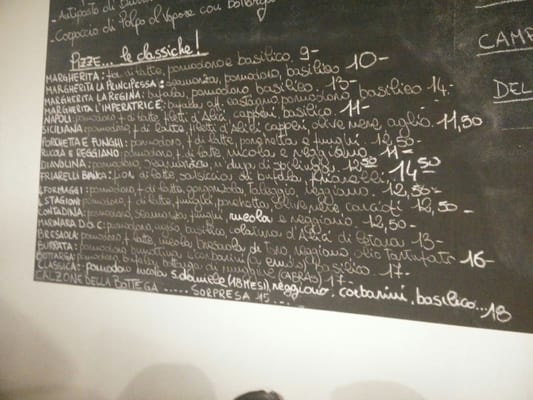 - Antipasto di
- Carpaccio di Polpo al Vapore con bottarga
PIZZE... le classiche!
MARGHERITA: fior di latte, pomodoro e basilico 9-
MARGHERITA LA PRINCIPESSA: pomodoro, basilico 10-
MARGHERITA LA REGINA: bufala, pomodoro, basilico 13-
MARGHERITA L'IMPERATRICE: bufala aff. pomodoro, basilico 14-
NAPOLI: pomodoro, f. di latte, filetti d'Alici, capperi, basilico 11-
SICILIANA: pomodoro, f. di latte, filetti d'Alici, capperi, olive nere, aglio. 11,50
PORCHETTA E FUNGHI: pomodoro, f. di latte, porchetta e funghi 12,50
RUCOLA E REGGIANO: pomodoro, f. di latte, rucola e reggiano 11-
DIAVOLINA: pomodoro, 12,50
FRIARELLI BIANCA: fior di latte, salsiccia di bufala, friarielli 14,50
4 FORMAGGI: pomodoro, f. di latte, gorgonzola, Taleggio, reggiano. 12,50-
4 STAGIONI: pomodoro, f. di latte, funghi, olive nere, carciofi 12,50-
CONTADINA: pomodoro, scamorza, funghi, rucola e reggiano 12,50-
MARINARA D.O.C: pomodoro, aglio, basilico, colatura d'Alici di Cetara 13-
BRESAOLA: pomodoro, f. latte, rucola, bresaola di reggiano, olio tartufato 16-
BURRATA: pomodoro, burrattina, corbarini basilico 17-
BOTTARGA: pomodoro, bufala, bottarga di muggine (CABRAS) 17-
CLASSICA: pomodoro, rucola, S. daniele (18 MESI), reggiano, corbarini, basilico... 18
CALZONE DELLA BOTTEGA ..... SORPRESA 15 ....
CAMP
DEL